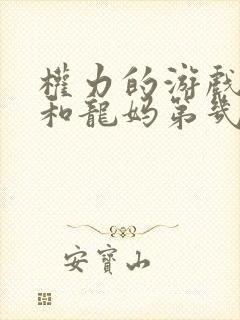 權力的游戲
和龍媽第幾
安寶山